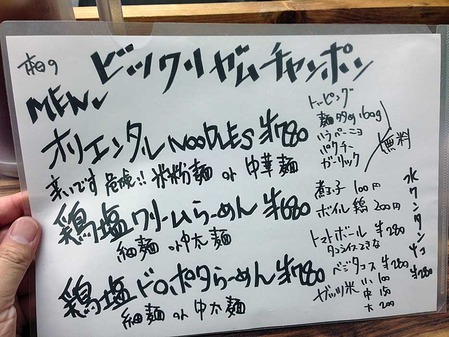 本日の
ビックリガムチャンポン
MENU
オリエンタルNOODLES ¥780
辛いです 危険!! 米粉麺 or 中華麺
鶏塩クリームらーめん ¥680
細麺 or 中太麺
鶏塩ドロポタらーめん ¥780
細麺 or 中太麺
トッピング
麺 160g
ハラペーニョ
パクチー
ガーリック
無料
煮玉子 100円
ボイル鶏 200円
トマトボール ¥280
ベジタコス ¥280
ガッツ米 小 100
中 150
大 200
水
ワンタン
¥280